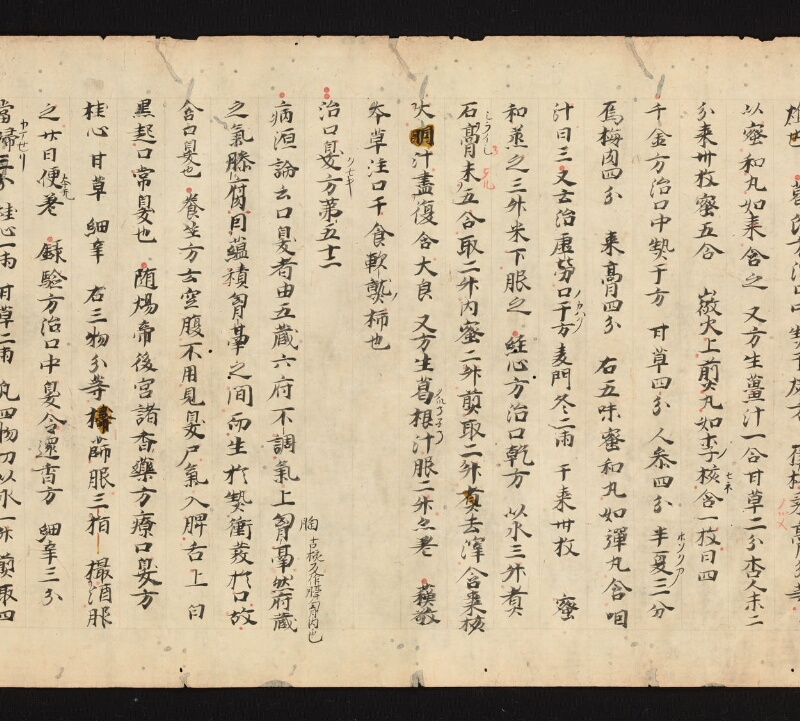 以蜜和丸如棗含之 又方生薑汁一合甘草二分杏人末二
分棗卅枚蜜五合 微火上煎丸如李核含一枚日四
千金方治口中熱干方 甘草四分 人參四分 半夏三分
烏梅肉四分 棗膏四分 右五味蜜和丸如彈丸含咽
汁日三 又云治虛勞口干方 麦門冬二兩 干棗卅枚 蜜
和并之三升米下服之 經心方治口乾方 以水三升煮
石膏末五合取二升內蜜二升煎取二升煎去滓含棗核
大咽汁盡復含大良 又方生葛根汁服二升
本草注口干食軟熟柿也
治口臭方第五十二
病源論云口臭者由五藏六府不調氣上胷鬲然府藏
之氣臊腐不同蘊積胷鬲之間而生於熱衝發於口故
令口臭也 養生方云空腹不用見臭尸氣入脾舌上白
黑起口常臭也 随煬帝後宮諸香藥方療口臭方
桂心 甘草 細辛 右三物分等擣篩服三指撮酒服
之廿日便差 錄驗方治口中臭令還香方 細辛三分
當歸三分 桂心一兩 甘草二兩 四物以水一升煎取四